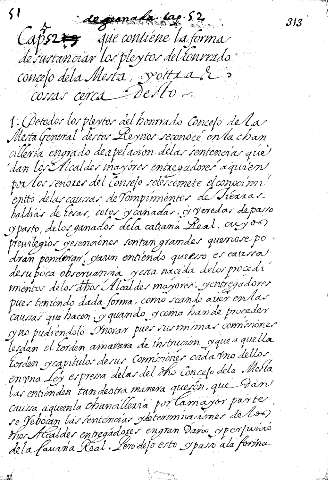 51
de granada cap. 52
313
Cap. 52 que contiene la forma
de sustanciar los pleytos del honrrado
Concejo de la Mesta, y otras
cosas cerca desto
1. Todos los pleytos del honrrado Concejo de la
Mesta General destos Reynos se conoce en la chan
cilleria en grado de apelacion de las sentencias que
dan los Alcaldes mayores entregadores a quien
por los señores del Consejo se les comete el conocimi
ento de las causas de rompimientos de tierras
baldias de esas, cotos y cañadas, y veredas de paso
y pasto, de los ganados de la cabaña Real, cuyos
previlegios y esenciones son tan grandes que no se po
dran ponderar, y aun entiendo que eso es causa
de su poca observancia y esta nacida de los procedi
mientos de los dhos Alcaldes mayores, y entregadores
pues teniendo dada forma, como se an de aver en las
causas que hacen y quando, y como han de proceder
y no pudiendolo Ynorar pues sus mismas comisiones
les dan el horden a manera de instrucion, y que aquella
horden y capitulos de sus Comisiones cada uno dellos
en uno Ley espresa de las del dho Concejo de la Mesta
las entienden tan de otra manera que son, que dan
causa a que en la chancilleria por la mayor parte
se rebocan las sentencias y determinaciones de los
dhos Alcaldes entregadores en gran daño, y perjuicio
de la Cavaña Real. Pero dejo esto y paso a la forma